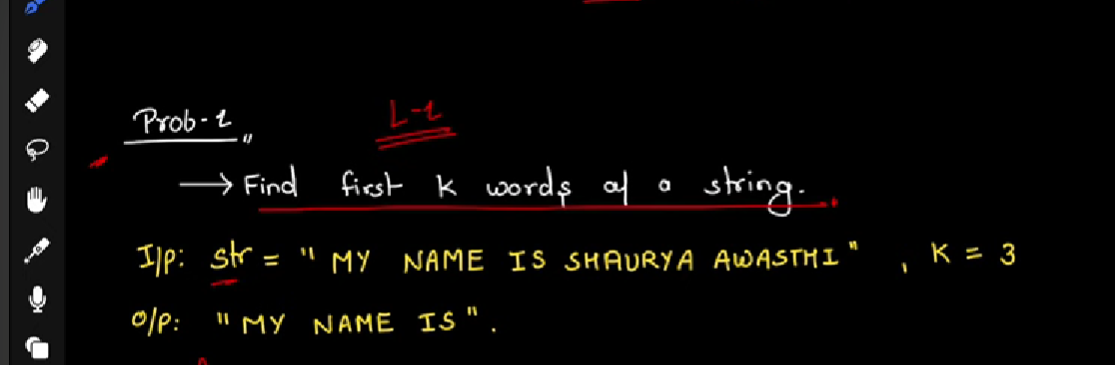 Prob-1 L-1
→ Find first k words of a string.
I/P: str = "MY NAME IS SHAURYA AWASTHI", K = 3
O/P: "MY NAME IS".